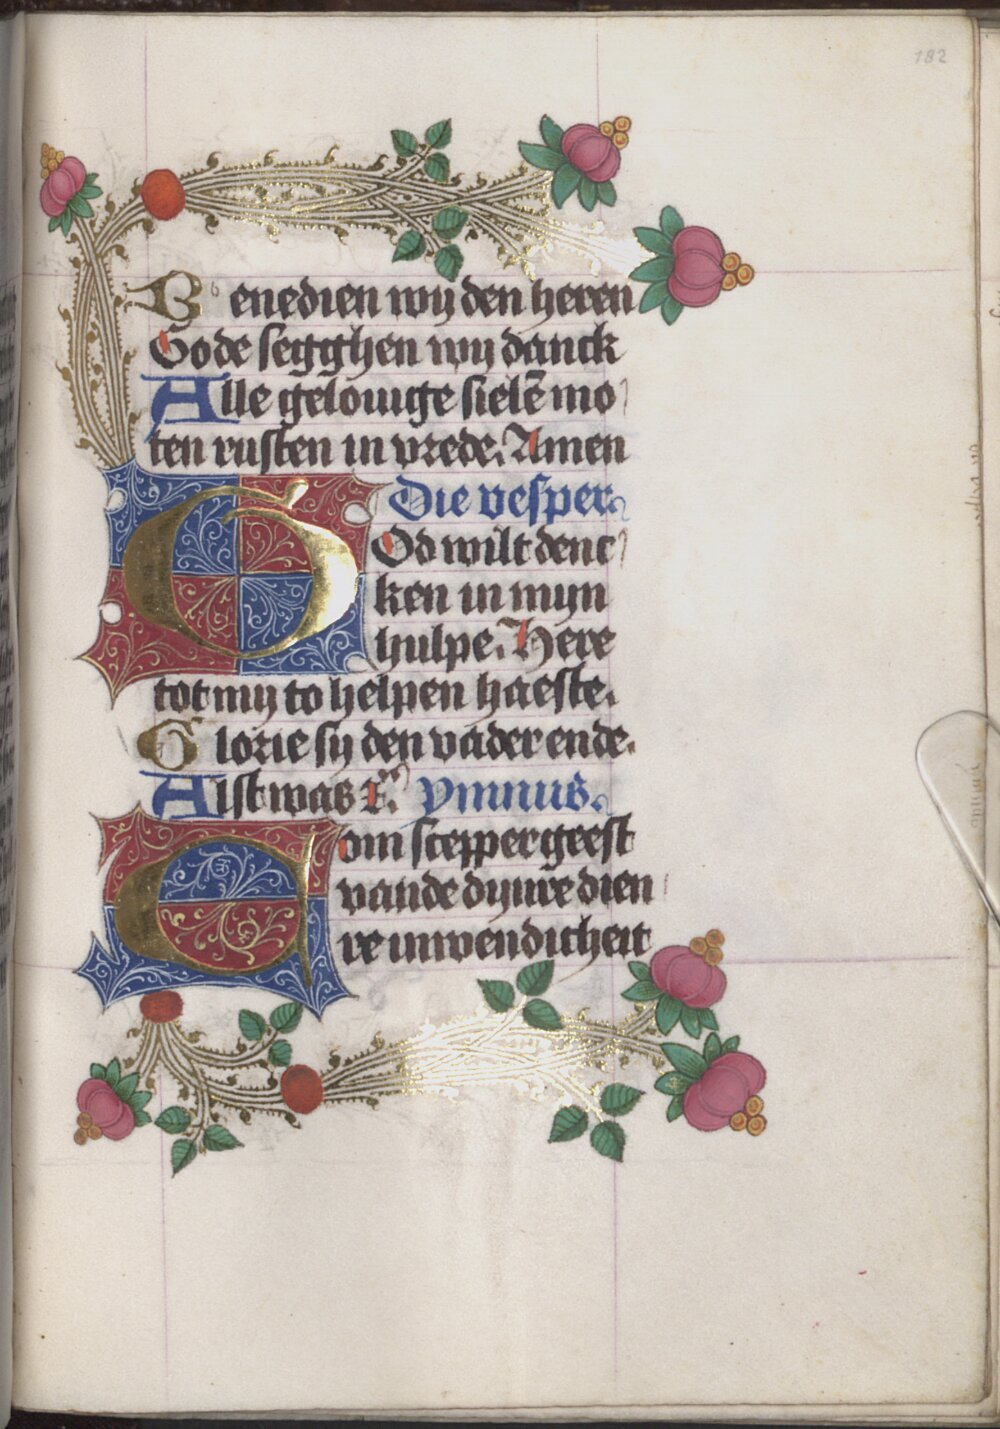 182
Benedien wij den heren
Gode segghen wij danck
Alle gelouige sielē mo
ten rusten in vrede. Amen
Die vesper
God wilt denc
ken in mijn
hulpe. Here
tot mij to helpen haeste.
Glorie sij den vader ende.
Alst was E. ymnus.
Com scepper geest
vande dijnre dien
re inwendicheit